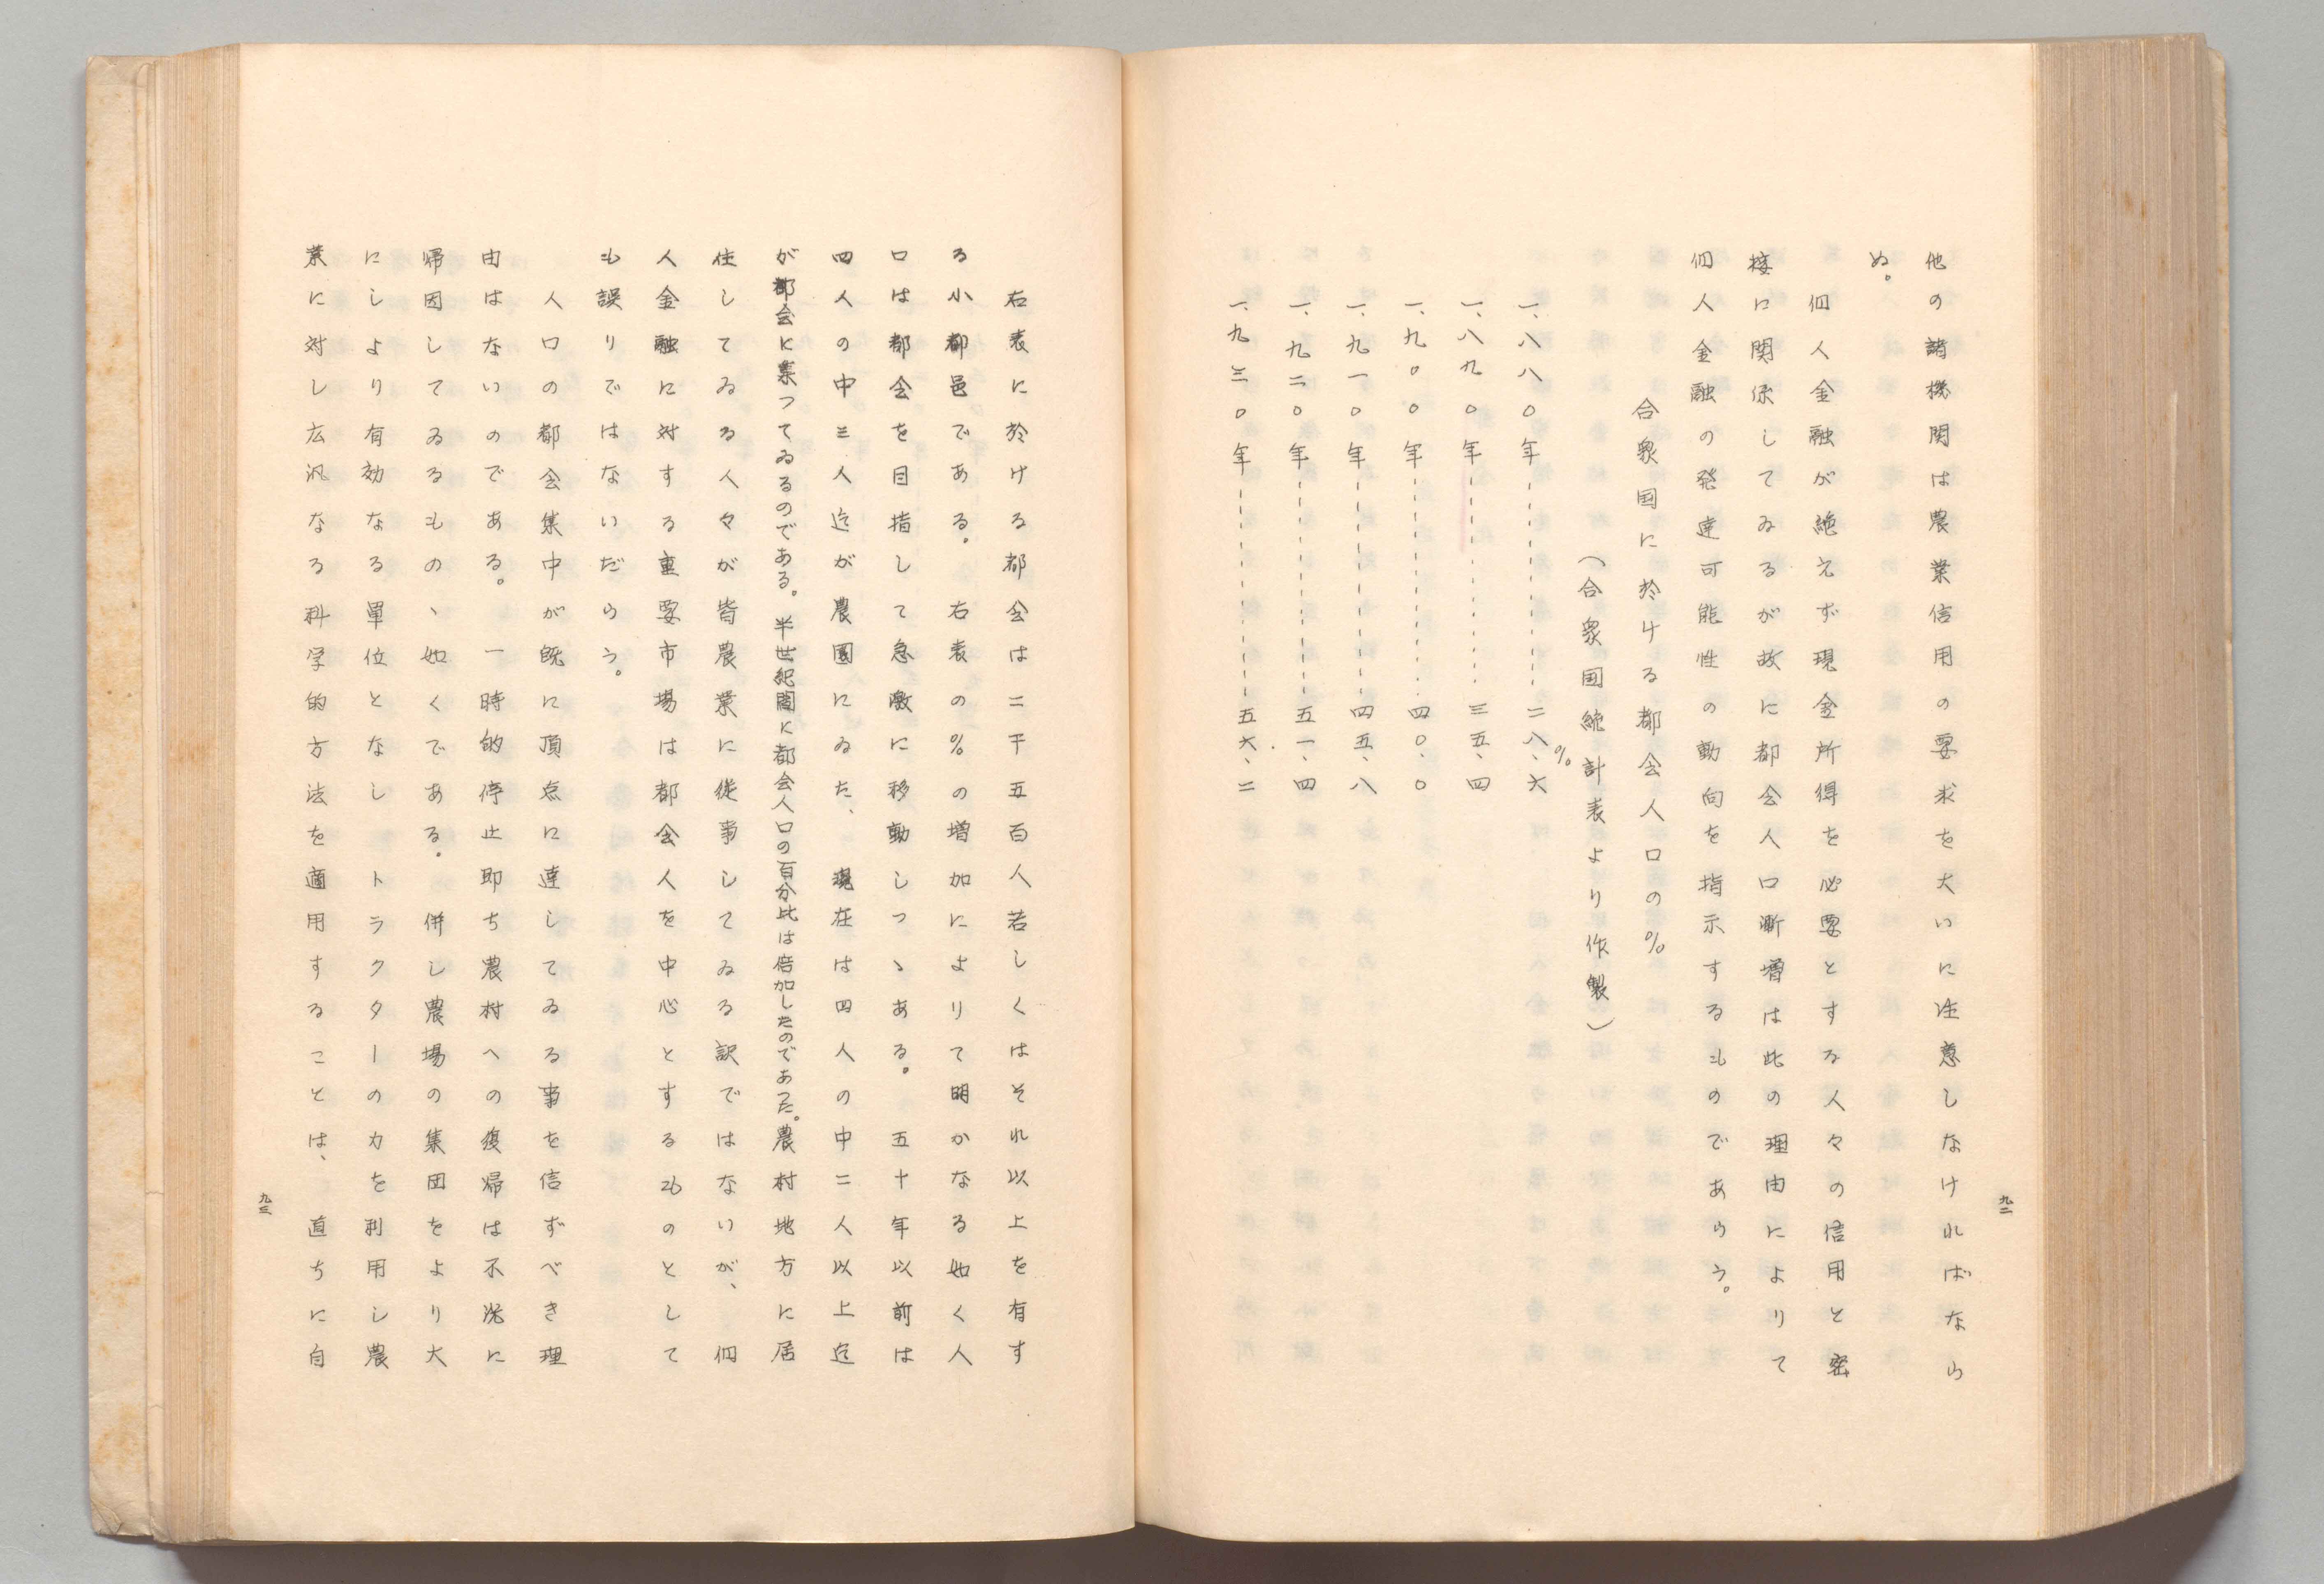 他の諸機関は農業信用の要求を大いに注意しなければなら
ぬ。
個人金融が絶えず現金所得を必要とする人々の信用と密
接に関係してゐるが故に都会人口漸増は此の理由によりて
個人金融の発達可能性の動向を指示するものであらう。
合衆国に於ける都会人口の%
（合衆国統計表より作製）
%
一、八八〇年----------二八、六
一、八九〇年----------三五、四
一、九〇〇年----------四〇、〇
一、九一〇年----------四五、八
一、九二〇年----------五一、四
一、九三〇年----------五六、二
九二
右表に於ける都会は二千五百人若しくはそれ以上を有す
る小都邑である。右表の%の増加によりて明かなる如く人
口は都会を目指して急激に移動しつゝある。五十年以前は
四人の中三人迄が農園にゐた、現在は四人の中二人以上迄
が都会に集つてゐるのである。半世紀間に都会人口の百分比は倍加したのであつた。農村地方に居
住してゐる人々が皆農業に従事してゐる訳ではないが、個
人金融に対する重要市場は都会人を中心とするものとして
も誤りではないだらう。
人口の都会集中が既に頂点に達してゐる事を信ずべき理
由はないのである。一時的停止即ち農村への復帰は不況に
帰因してゐるものゝ如くである。併し農場の集団をより大
にしより有効なる単位となしトラクターの力を利用し農
業に対し広汎なる科学的方法を適用することは、直ちに自
九三